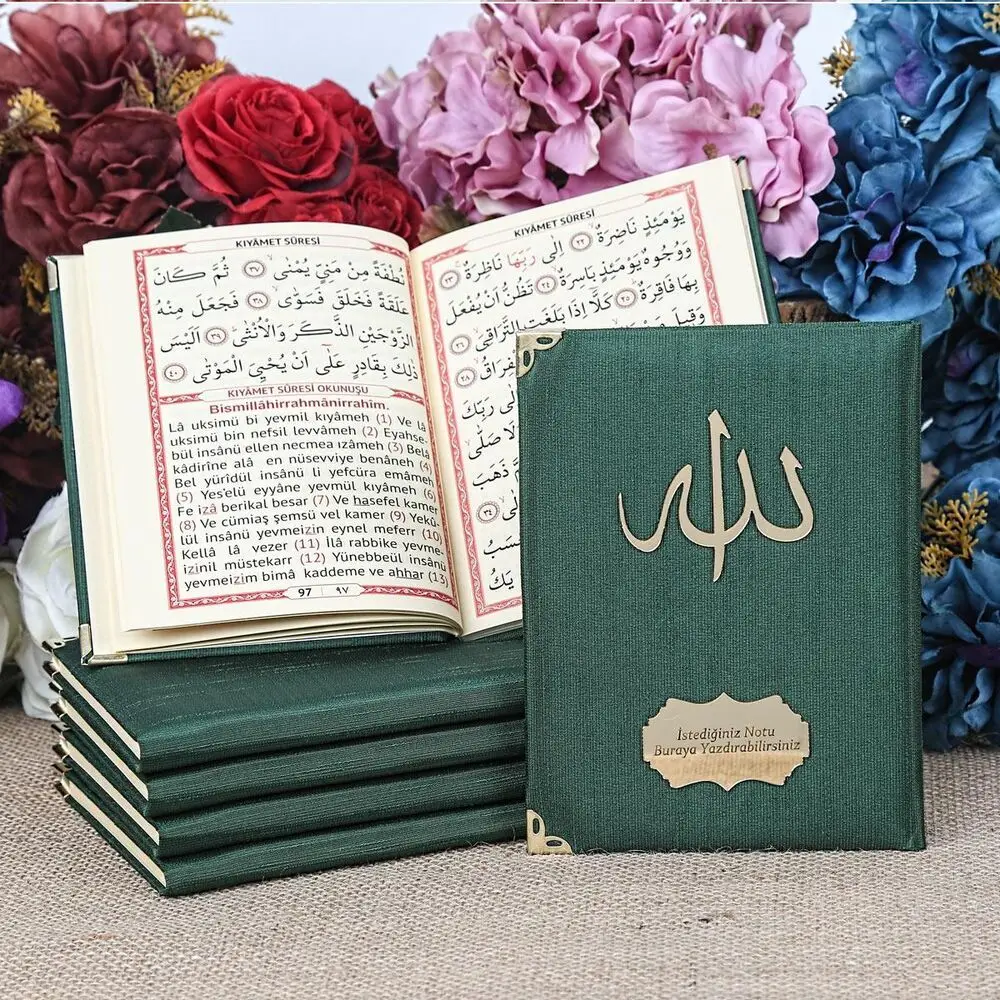 KIYÂMET SÛRESİ
نُطْفَةً مِنْ مَنِيٍّ يُمْنٰىۙ ﴿٣٧﴾ ثُمَّ كَانَ
عَلَقَةً فَخَلَقَ فَسَوّٰىۙ ﴿٣٨﴾ فَجَعَلَ مِنْهُ
الزَّوْجَيْنِ الذَّكَرَ وَالْاُنْثٰىۜ ﴿٣٩﴾ اَلَيْسَ
ذٰلِكَ بِقَادِرٍ عَلٰٓى اَنْ يُحْيِيَ الْمَوْتٰى ﴿٤٠﴾
KIYÂMET SÛRESİ OKUNUŞU
Bismillâhirrahmânirrahîm.
Lâ uksimü bi yevmil kıyâmeh (1) Ve lâ
uksimü bin nefsil levvâmeh (2) Eyahse-
bül insânü ellen necmea ızâmeh (3) Belâ
kâdirîne alâ en nüsevviye benâneh (4)
Bel yürîdül insânü li yefcüra emâmeh
(5) Yes'elü eyyâne yevmül kıyâmeh (6)
Fe izâ berikal besar (7) Ve hasefel kamer
(8) Ve cümiaş şemsü vel kamer (9) Yekû-
lül insânü yevmeizin eynel meferr (10)
Kellâ lâ vezer (11) İlâ rabbike yevme-
izinil müstekarr (12) Yünebbeül insânü
yevmeizim bimâ kaddeme ve ahhar (13)
97 ٩٧
KIYÂMET SÛRESİ
يَوْمَئِذٍ نَاضِرَةٌۙ ﴿٢٢﴾ اِلٰى رَبِّهَا نَاظِرَةٌۚ ﴿٢٣﴾
وَوُجُوهٌ يَوْمَئِذٍ بَاسِرَةٌۙ ﴿٢٤﴾ تَظُنُّ اَنْ يُفْعَلَ
بِهَا فَاقِرَةٌۜ ﴿٢٥﴾ كَلَّٓا اِذَا بَلَغَتِ التَّرَاقِيَۙ ﴿٢٦﴾
وَقِيلَ
الْفِرَاقُۙ ﴿٢٨﴾
اِلٰى رَبِّكَ
صَلّٰىۙ
ذَهَبَ
﴿٣٤﴾
يَكُ
الله
İstediğiniz Notu
Buraya Yazdırabilirsiniz